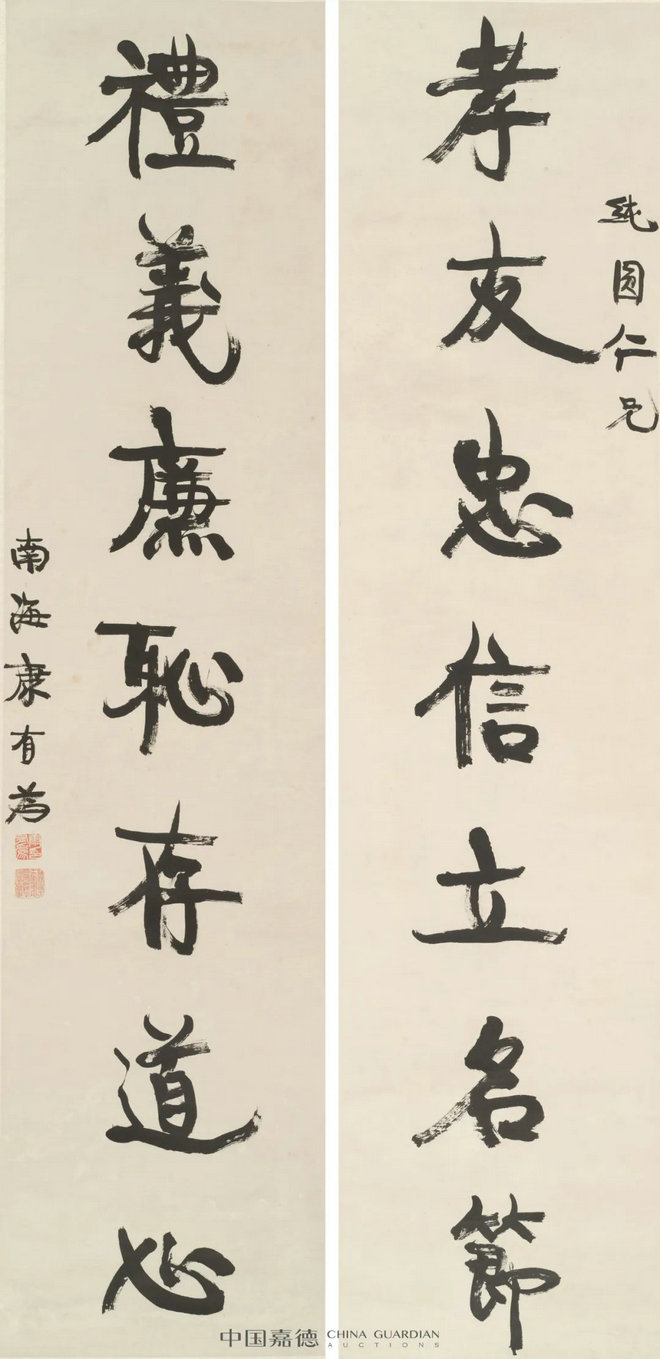 純圓仁兄
孝友忠信立名節
禮義廉恥存道心
南海康有為
中国嘉德 CHINA GUARDIAN
AUCTIONS